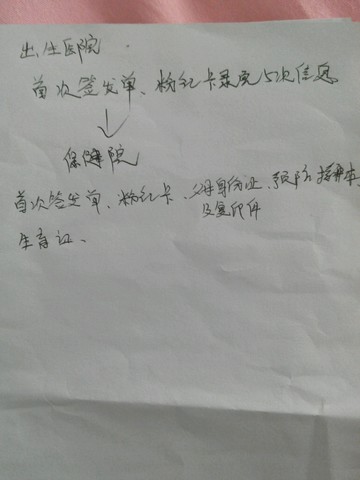 出生医院
首次签发单、粉红卡录完5次信息
保健院
首次签发单、粉红卡、父母身份证、预防接种本、
及复印件
生育证、